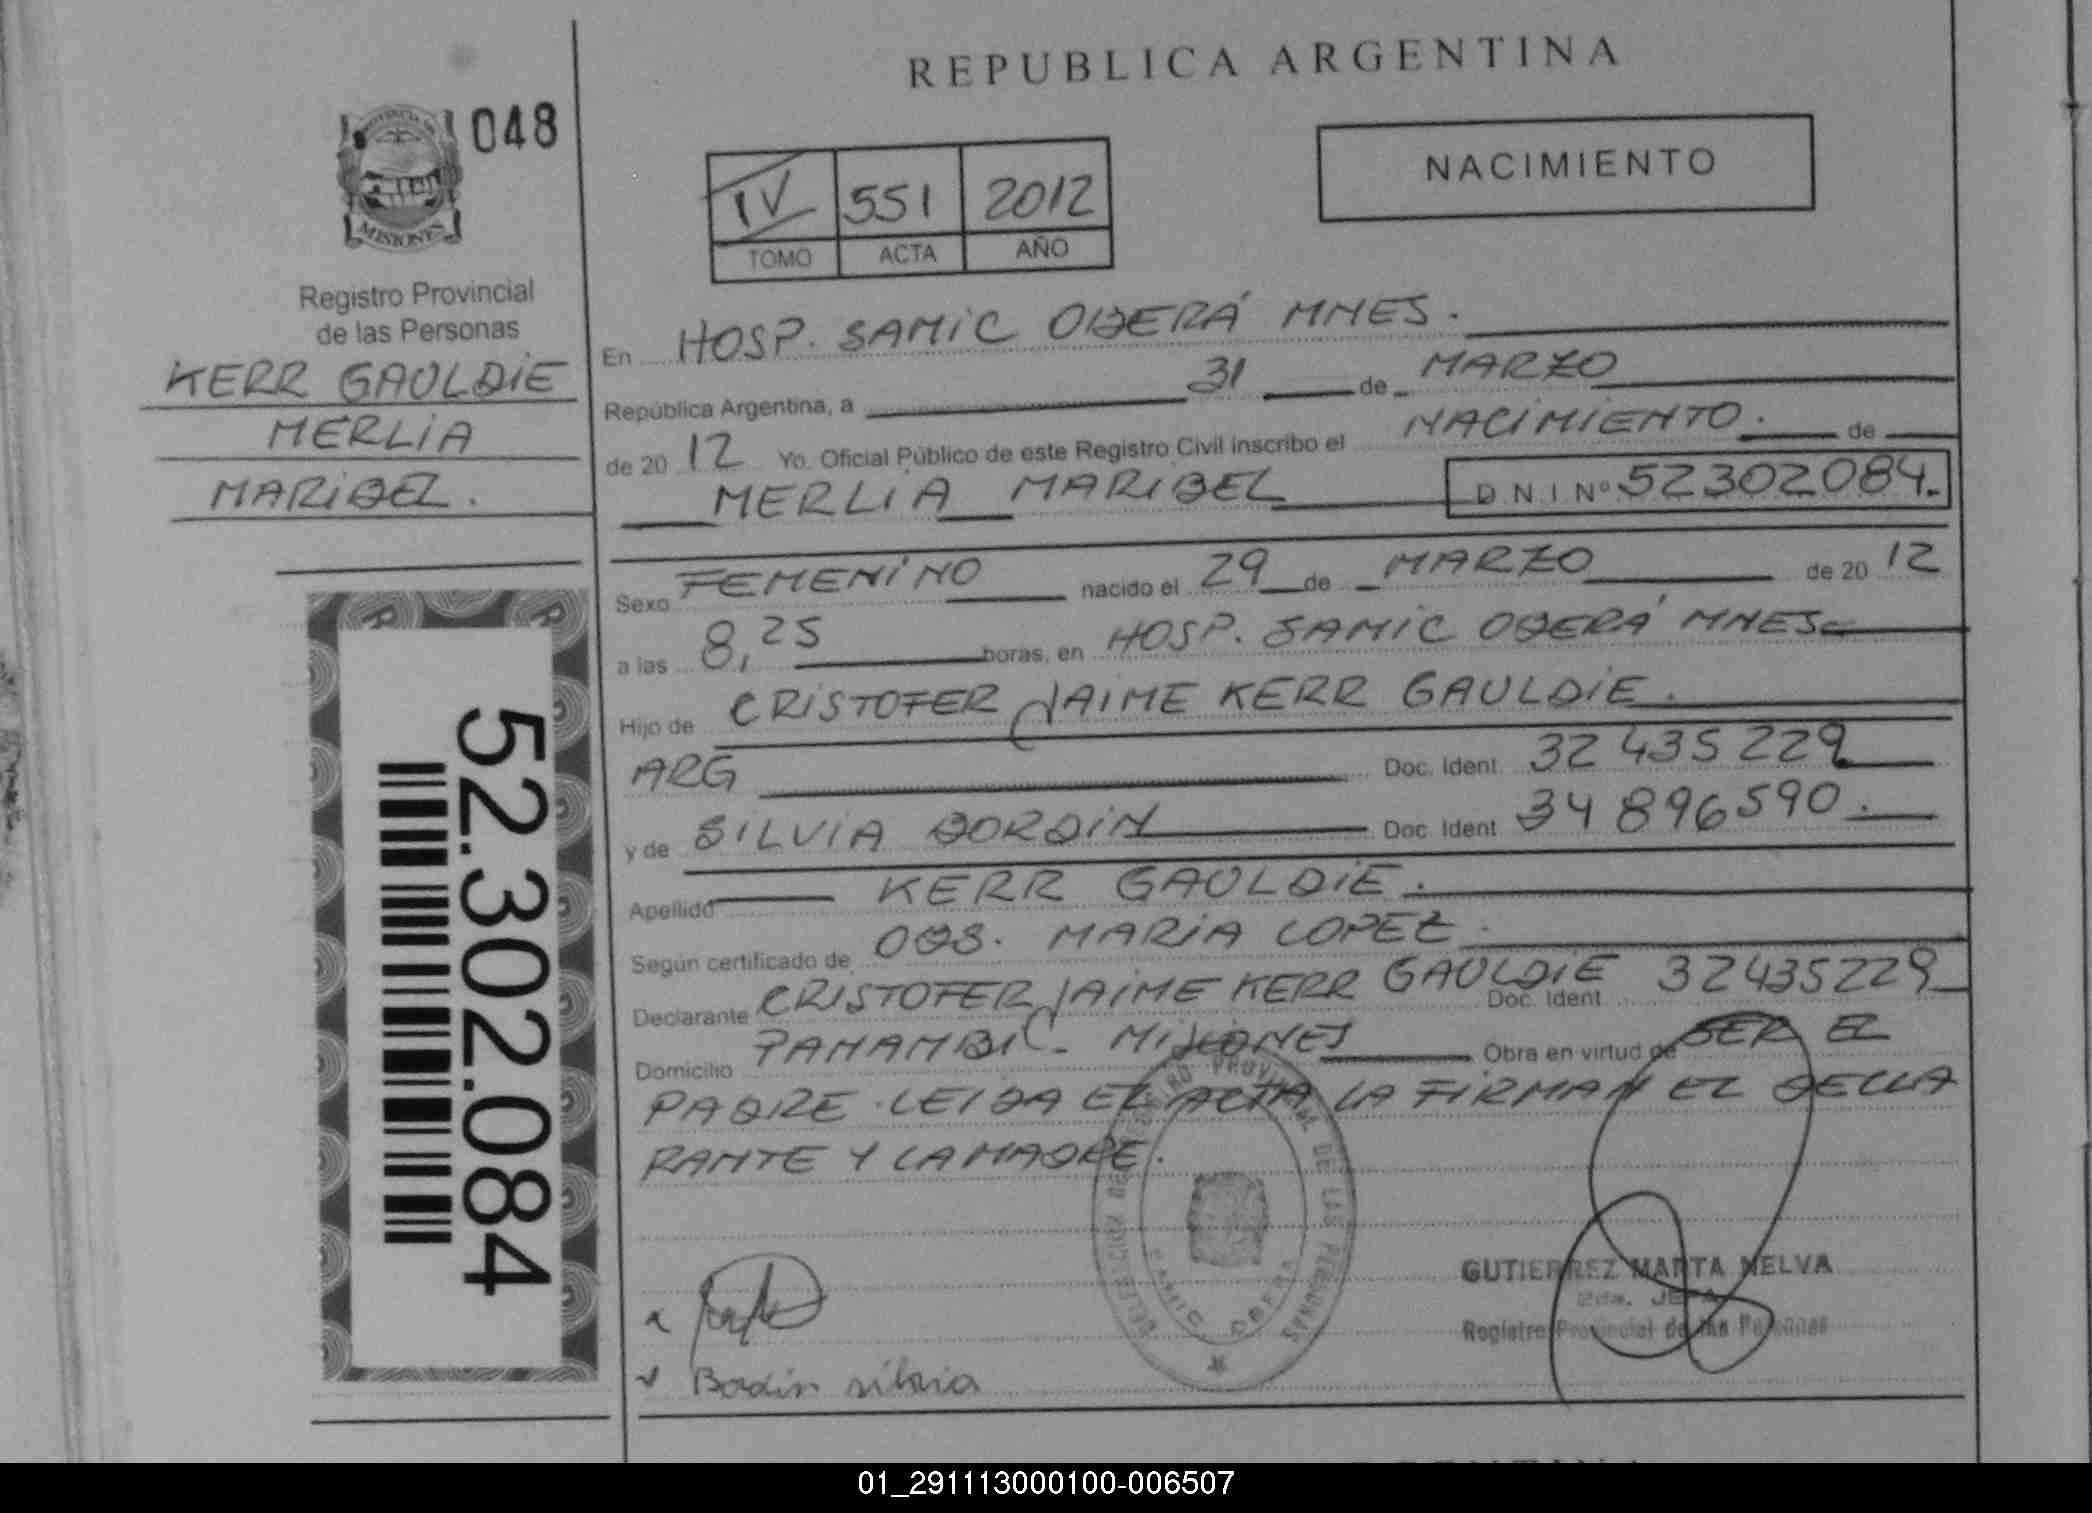 REPUBLICA ARGENTINA
048
PROVINCIA DE
MISIONES
Registro Provincial
de las Personas
KERR GAULDIE
MERLIA
MARIBEL.
52.302.084
NACIMIENTO
IV 551 2012
TOMO ACTA AÑO
En HOSP. SAMIC OBERÁ MNES.
República Argentina, a 31 de MARZO
de 20 12 Yo. Oficial Público de este Registro Civil inscribo el NACIMIENTO. de
MERLIA MARIBEL D N I Nº 52302084.
Sexo FEMENINO nacido el 29 de MARZO de 20 12
a las 8,25 horas, en HOSP. SAMIC OBERÁ MNES
Hijo de CRISTOFER JAIME KERR GAULDIE.
ARG Doc. Ident 32 435 229
y de SILVIA BORDIN Doc. Ident 34 896590.
Apellido KERR GAULDIE.
Según certificado de OBS. MARIA LOPEZ.
Declarante CRISTOFER JAIME KERR GAULDIE Doc. Ident 32435229
Domicilio PANAMBI - MISIONES Obra en virtud de SER EL
PADRE. LEIDA EL ACTA LA FIRMAN EL DECLA
RANTE Y LA MADRE.
REGISTRO PROVINCIAL DE LAS PERSONAS
OBERA
GUTIERREZ MARTA NELVA
2da. JEFA
Registro Provincial de las Personas
Bodin silvia
01_291113000100-006507